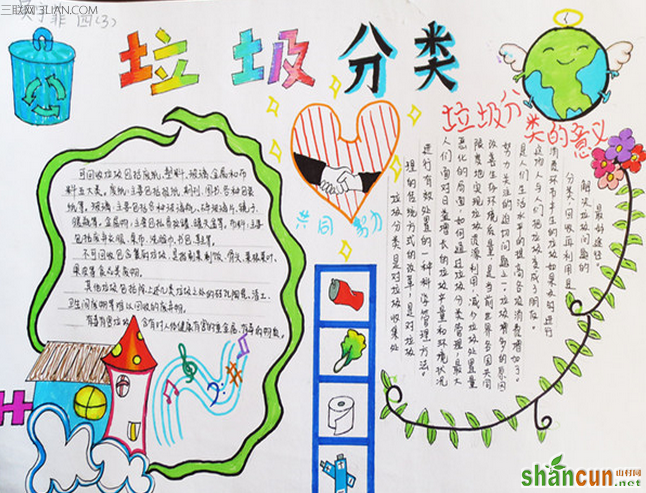 三联网 3LIAN.COM
园(3)
垃圾分类
可回收垃圾包括废纸,塑料,玻璃,金属和布
料五大类。废纸:主要包括报纸,期刊,图书,各种包装
纸等。玻璃:主要包括各种玻璃瓶,碎玻璃片,镜子,
暖瓶等。金属物:主要包括易拉罐,罐头盒等。布料:主要
包括废弃衣服,桌布,洗脸巾,书包,鞋等。
不可回收包含餐厨垃圾,是指剩菜剩饭,骨头,菜根菜叶,
果皮等食品类废物。
其他垃圾包括除上述几类垃圾之外的砖瓦陶瓷,渣土,
卫生间废纸等难以回收的废弃物。
有毒有害垃圾 含有对人体健康有害的重金属,有毒的物质。
共同 努力
垃圾分
类的意义
垃圾分类是对垃圾收集处
理的传统方式的改革,是对垃圾
进行有效处置的一种科学管理方法。
人们面对日益增长的垃圾产量和环境状况
恶化的局面,如何通过垃圾分类管理,最大
限度地实现垃圾资源利用,减少垃圾处置量
改善生存环境质量,是当前世界各国共同
努力关注的迫切问题之一。垃圾增多的原因
是人们生活水平的提高各级消费增加了。
消费环节产生的垃圾如果未能进行
分类、回收再利用是
解决垃圾问题的
最好途径。
shancun 山村网
.net